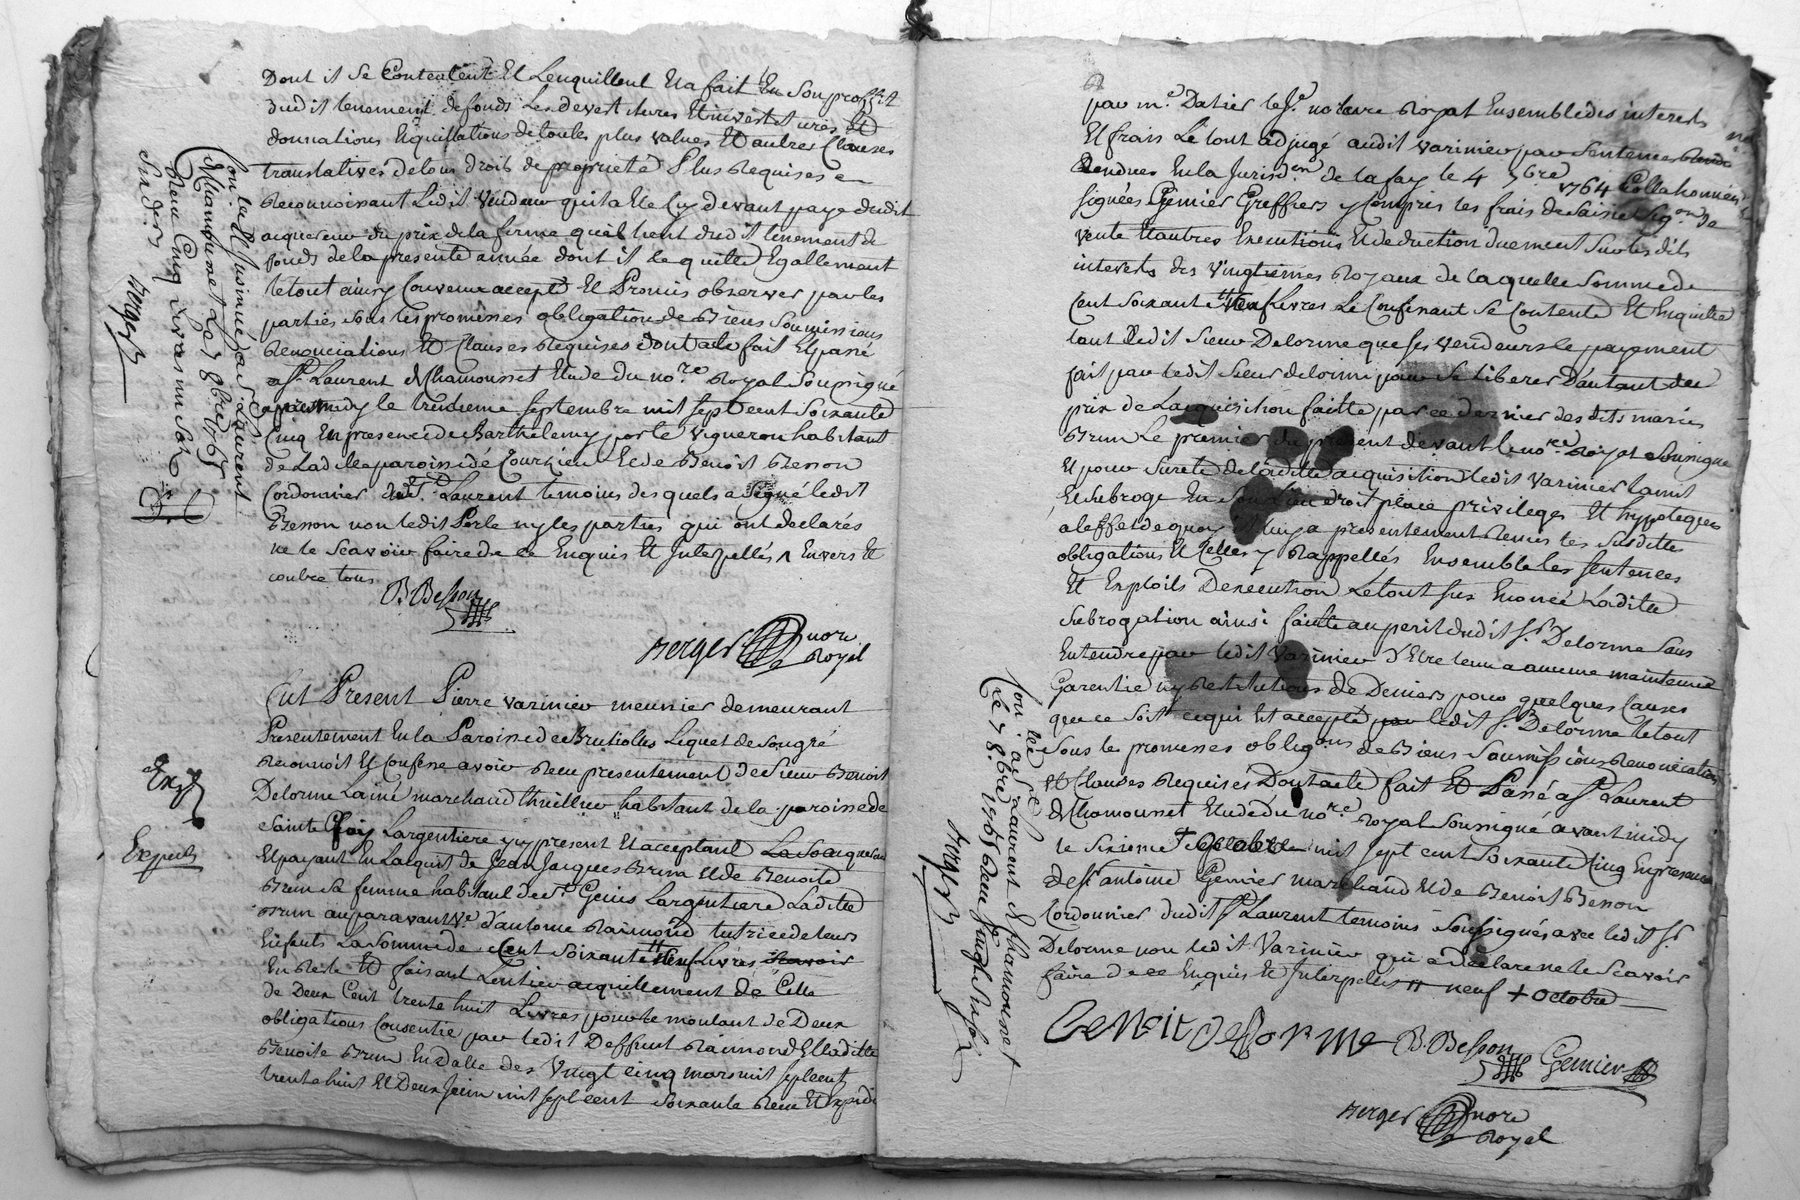 Dont il se Contentent Et Lenquittent Et a fait En son proffit
dudit tenement de fonds Les devestitures Et investitures Et
donnations Equisitations de toutes plus values Et autres Clauses
translatives de tous droits de proprieté Plus Requises en
Reconnoissant Ledit Vendeur quil a Eté Cy devant payé dudit
acquereur du prix de la ferme quil tient dudit tenement de
fonds de la presente année dont il le quitte Egallement
le tout ainsy Convenu accepté Et Promis observer par les
parties sous les promesses obligation de Biens Soumissions
Renonciations Et Clauses Requises dont acte fait Et passé
a St. Laurent de Chamousset Etude du nore. Royal Soussigné
apres midy le treizieme septembre mil sept cent soixante
Cinq En presence de Barthelemy porte vigneron habitant
de Ladite paroisse de Courzieu Et de Benoit Besson
Cordonnier dudt. St. Laurent temoins desquels a Signé ledit
Besson non ledit Porte ny les parties qui ont declarés
ne le Scavoir faire de ce Enquis Et Interpellés ^ Envers Et
contre tous
B Besson
Berger nore
Royal
Conlé. et Insinué a St. Laurent
de Chamousset Le 7 8bre 1765
Reçu Cinq Livres un sol
Six deniers
Berger
Fut Present Pierre varinier meunier demeurant
Presentement En la Paroisse de Brullioles Lequel de Son gré
Reconnoit Et Confesse avoir Reçu presentement de Sieur Benoit
Delorme Lainé marchand thuillier habitant de la paroisse de
Sainte Foy Largentiere cy present Et acceptant
Et payant En Lacquit de Jean Jacques Brun Et de Benoite
Brun sa femme habitant de St. Genis Largentiere Ladite
Brun auparavant Ve. d'antoine Raimond tutrice de leurs
Enfants La Somme de Cent Soixante neuf Livres
En Reste Et faisant Lentier acquittement de Celle
de Deux Cent trente huit Livres pour le montant de Deux
obligations Consentie par ledit Deffunt Raimond Et Ladite
Benoite Brun En datte des Vingt cinq mars mil sept cent
trente huit Et Deux Juin mil sept cent soixante Reçu Et Expedié
Exp.
Expedié
par me. Datier le Je. notaire Royal Ensemble des interets
Et frais Le tout adjugé audit varinier par Sentences
Rendues En la Jurisdon. de la fay le 4 7bre 1764 Collationnées
signées Gemier Greffiers y Compris les frais de Saisie Sigon. de
vente Et autres Executions Et deduction duement Sur lesdits
interets des Vingtiemes Royaux de laquelle Somme de
Cent Soixante neuf Livres Le Confessant se Contente Et Enquitte
tant Ledit Sieur Delorme que ses vendeurs le payement
fait par ledit Sieur delorme pour se liberer Dautant du
prix de Lacquisition faitte par ce dernier desdits mariés
Brun Le premier du present devant le nore. Royal Soussigné
Et pour Sureté de ladite acquisition ledit Varinier lamit
Et Subroge En Son Lieu droit place privileges Et hypoteques
a leffet de quoy Il luy a presentement Remis les Susdittes
obligations Et Celles y Rappellés Ensemble les Sentences
Et Exploits Dexecution Le tout sus Enoncé Ladite
Subrogation ainsi faitte au peril dudit Sr. Delorme Sans
Entendre par ledit Varinier d'Etre tenu a aucune maintenue
Garentie ny Restitutions de Deniers pour quelques Causes
que ce Soit ce qui Est accepté par ledit Sr. Delorme le tout
Sous les promesses obligons de Biens Soumissions Renonciations
Et Clauses Requises Dont acte fait Et Passé a St. Laurent
de Chamousset Etude du nore. Royal Soussigné avant midy
le Sixieme + mil sept cent Soixante Cinq En presence
de Sr. antoine Gemier marchand Et de Benoit Besson
Cordonnier dudit St. Laurent temoins Soussignés avec ledit Sr.
Delorme non ledit Varinier qui a Declaré ne le Scavoir
faire de ce Enquis Et Interpellés # neuf + Octobre
Benoit delorme B. Besson Gemier
Berger nore
Royal
Conlé. a St. Laurent de Chamousset
Le 7 8bre 1765 Reçu
Berger